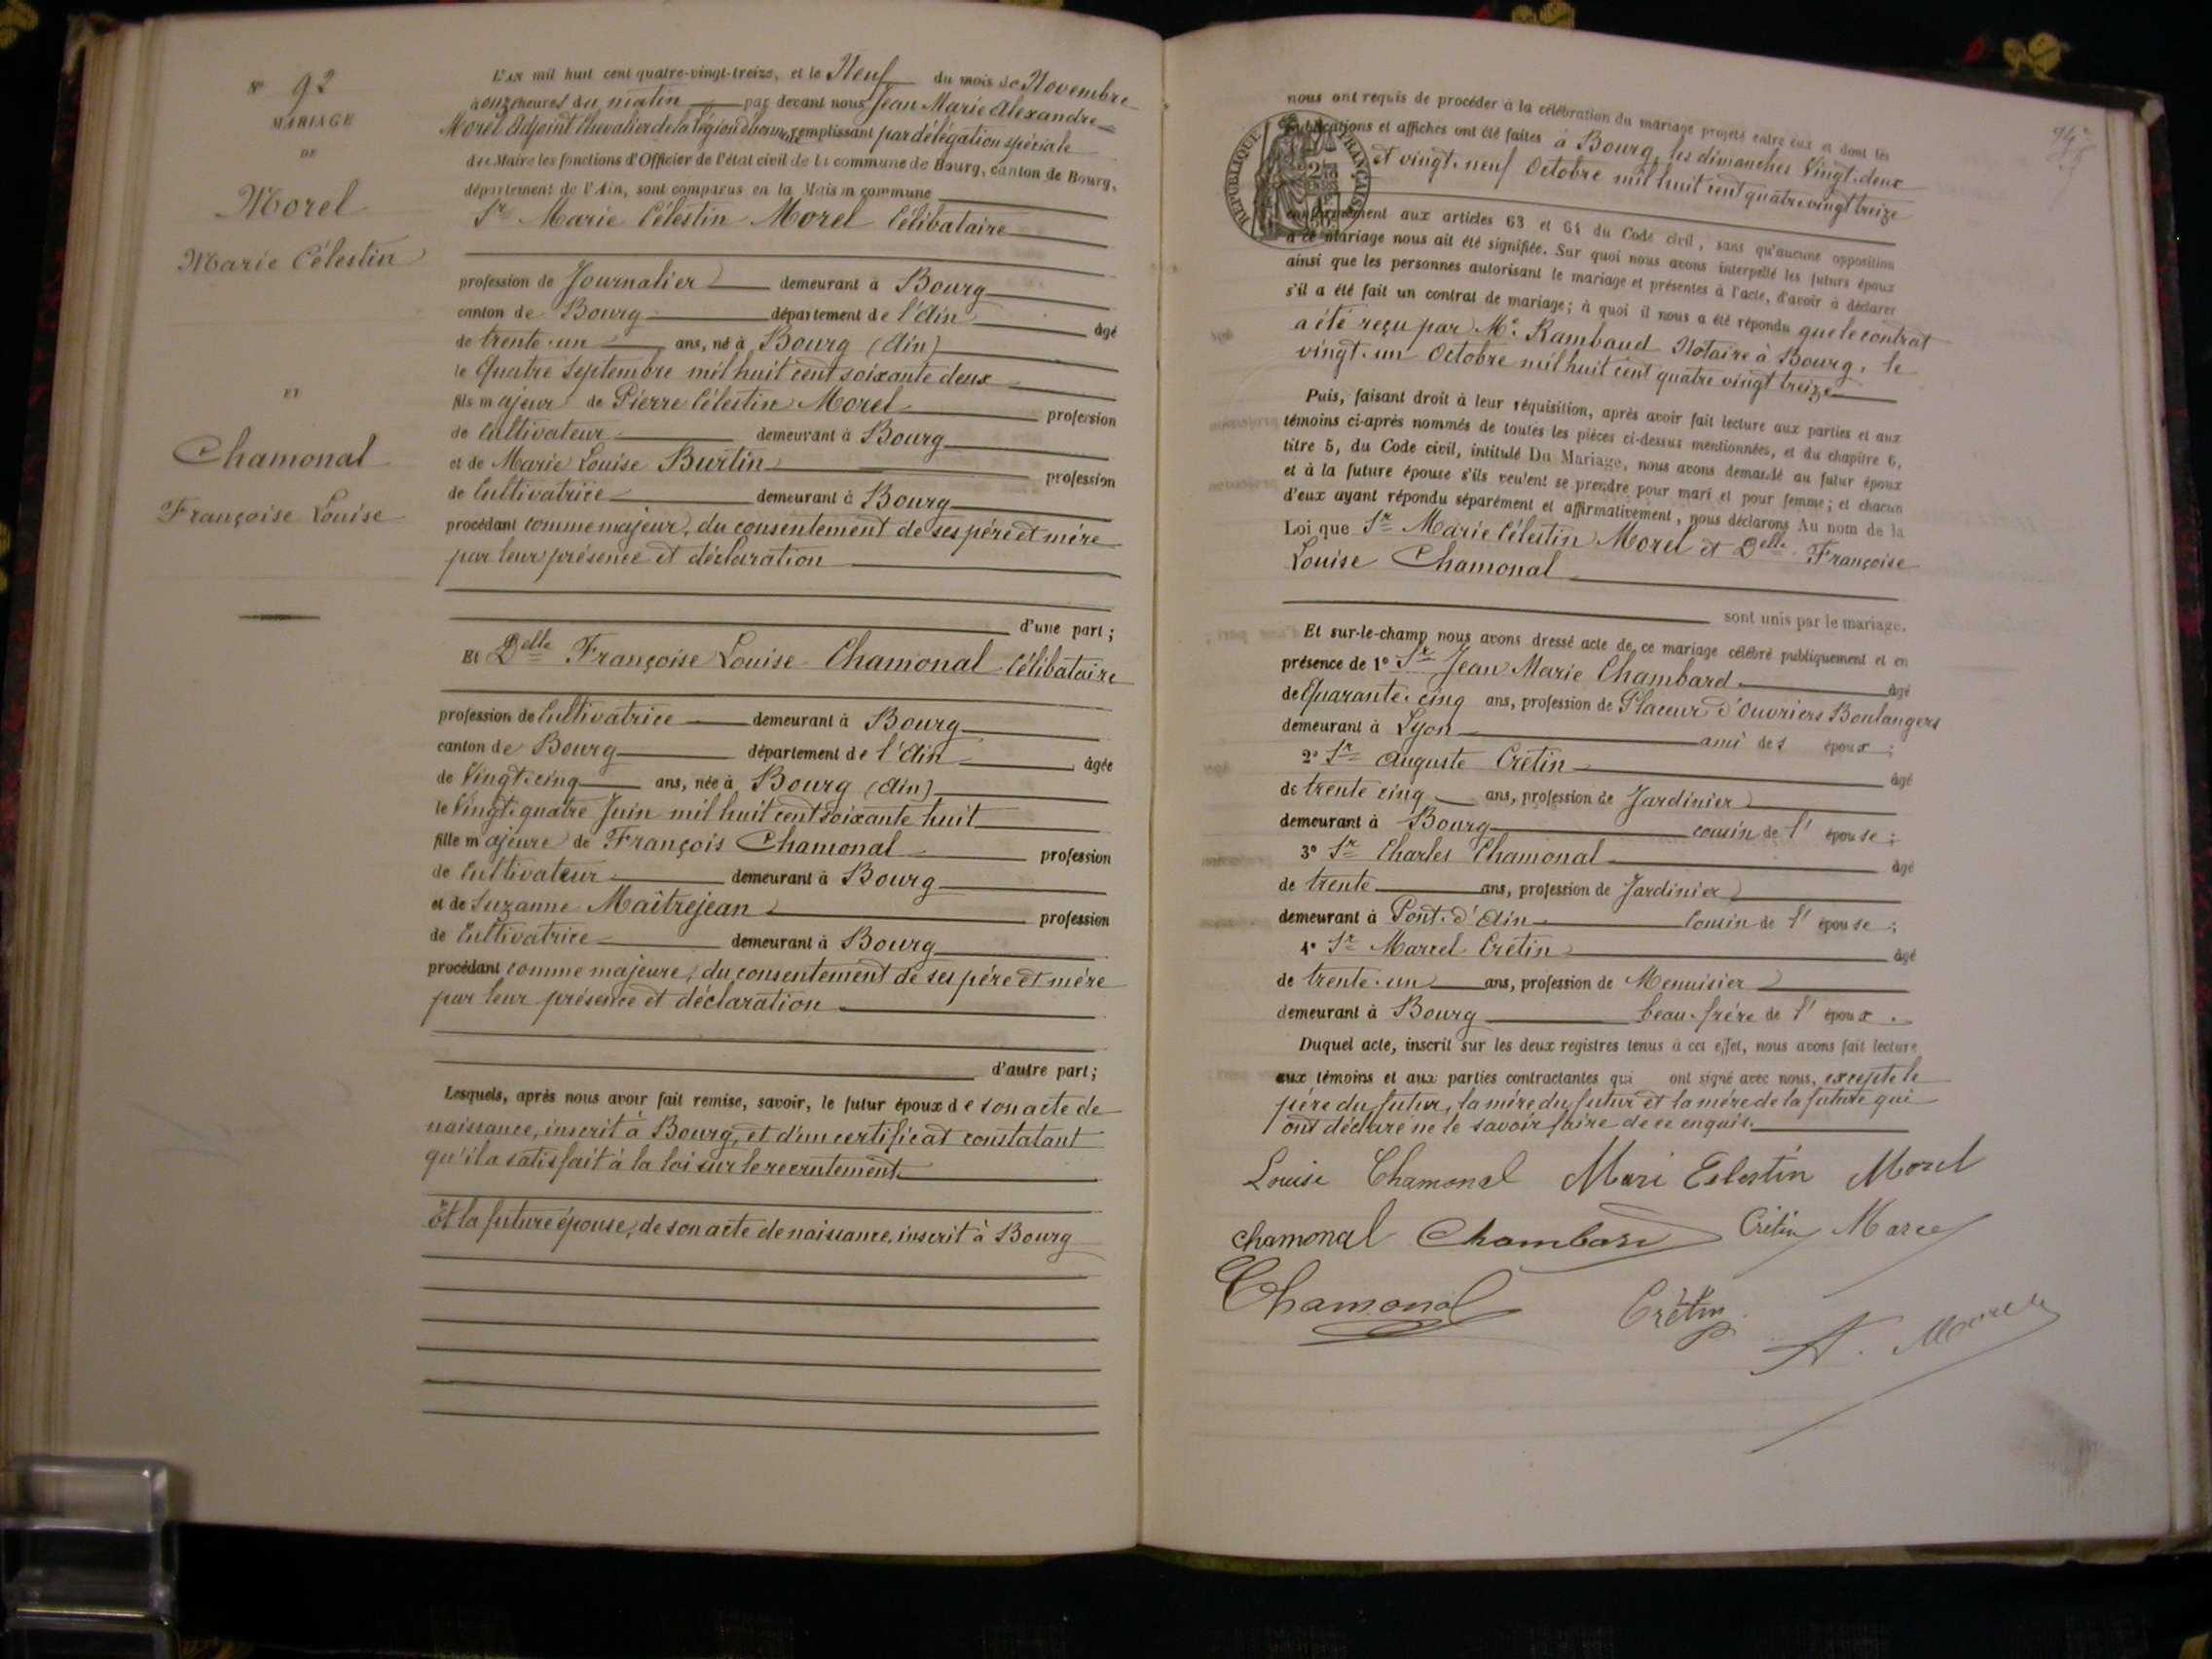 N° 92
MARIAGE
DE
Morel
Marie Célestin
ET
Chamonal
Françoise Louise
L'AN mil huit cent quatre-vingt-treize, et le Neuf du mois de Novembre
à onze heures du matin par devant nous Jean Marie Alexandre
Morel Adjoint Chevalier de la Légion d'honneur remplissant par délégation spéciale
du Maire les fonctions d'Officier de l'état civil de la commune de Bourg, canton de Bourg,
département de l'Ain, sont comparus en la Maison commune
Sr Marie Célestin Morel Célibataire
profession de Journalier demeurant à Bourg
canton de Bourg département de l'Ain âgé
de trente-un ans, né à Bourg (Ain)
le Quatre Septembre mil huit cent soixante deux
fils majeur de Pierre Célestin Morel profession
de Cultivateur demeurant à Bourg
et de Marie Louise Burtin profession
de Cultivatrice demeurant à Bourg
procédant comme majeur, du consentement de ses père et mère
par leur présence et déclaration
d'une part ;
Et Delle Françoise Louise Chamonal Célibataire
profession de Cultivatrice demeurant à Bourg
canton de Bourg département de l'Ain âgée
de Vingt-cinq ans, née à Bourg (Ain)
le Vingt-quatre Juin mil huit cent soixante huit
fille majeure de François Chamonal profession
de Cultivateur demeurant à Bourg
et de Suzanne Maîtrejean profession
de Cultivatrice demeurant à Bourg
procédant comme majeure, du consentement de ses père et mère
par leur présence et déclaration
d'autre part ;
Lesquels, après nous avoir fait remise, savoir, le futur époux de son acte de
naissance, inscrit à Bourg, et d'un certificat constatant
qu'il a satisfait à la loi sur le recrutement
Et la future épouse, de son acte de naissance, inscrit à Bourg
nous ont requis de procéder à la célébration du mariage projeté entre eux et dont les
publications et affiches ont été faites à Bourg, les dimanches Vingt-deux
et vingt-neuf Octobre mil huit cent quatre vingt treize
RÉPUBLIQUE FRANÇAISE
conformément aux articles 63 et 64 du Code civil, sans qu'aucune opposition
à ce mariage nous ait été signifiée. Sur quoi nous avons interpellé les futurs époux
ainsi que les personnes autorisant le mariage et présentes à l'acte, d'avoir à déclarer
s'il a été fait un contrat de mariage; à quoi il nous a été répondu que le contrat
a été reçu par Me Rambaud Notaire à Bourg, le
vingt-un Octobre mil huit cent quatre vingt treize
Puis, faisant droit à leur réquisition, après avoir fait lecture aux parties et aux
témoins ci-après nommés de toutes les pièces ci-dessus mentionnées, et du chapitre 6,
titre 5, du Code civil, intitulé Du Mariage, nous avons demandé au futur époux
et à la future épouse s'ils veulent se prendre pour mari et pour femme; et chacun
d'eux ayant répondu séparément et affirmativement, nous déclarons Au nom de la
Loi que Sr Marie Célestin Morel et Delle Françoise
Louise Chamonal
sont unis par le mariage.
Et sur-le-champ nous avons dressé acte de ce mariage célébré publiquement et en
présence de 1° Sr Jean Marie Chambard âgé
de Quarante-cinq ans, profession de Placeur d'Ouvriers Boulangers
demeurant à Lyon ami des époux ;
2° Sr Auguste Cretin âgé
de trente cinq ans, profession de Jardinier
demeurant à Bourg cousin de l' épouse ;
3° Sr Charles Chamonal âgé
de trente ans, profession de Jardinier
demeurant à Pont-d'Ain Cousin de l' épouse ;
4° Sr Marcel Cretin âgé
de trente-un ans, profession de Menuisier
demeurant à Bourg beau-frère de l' époux .
Duquel acte, inscrit sur les deux registres tenus à cet effet, nous avons fait lecture
aux témoins et aux parties contractantes qui ont signé avec nous, excepté le
père du futur, la mère du futur et la mère de la future qui
ont déclaré ne le savoir faire de ce enquis.
Louise Chamonal Mari Célestin Morel
chamonal Chambard Crétin Marcel
Chamonal Crétin A. Morel